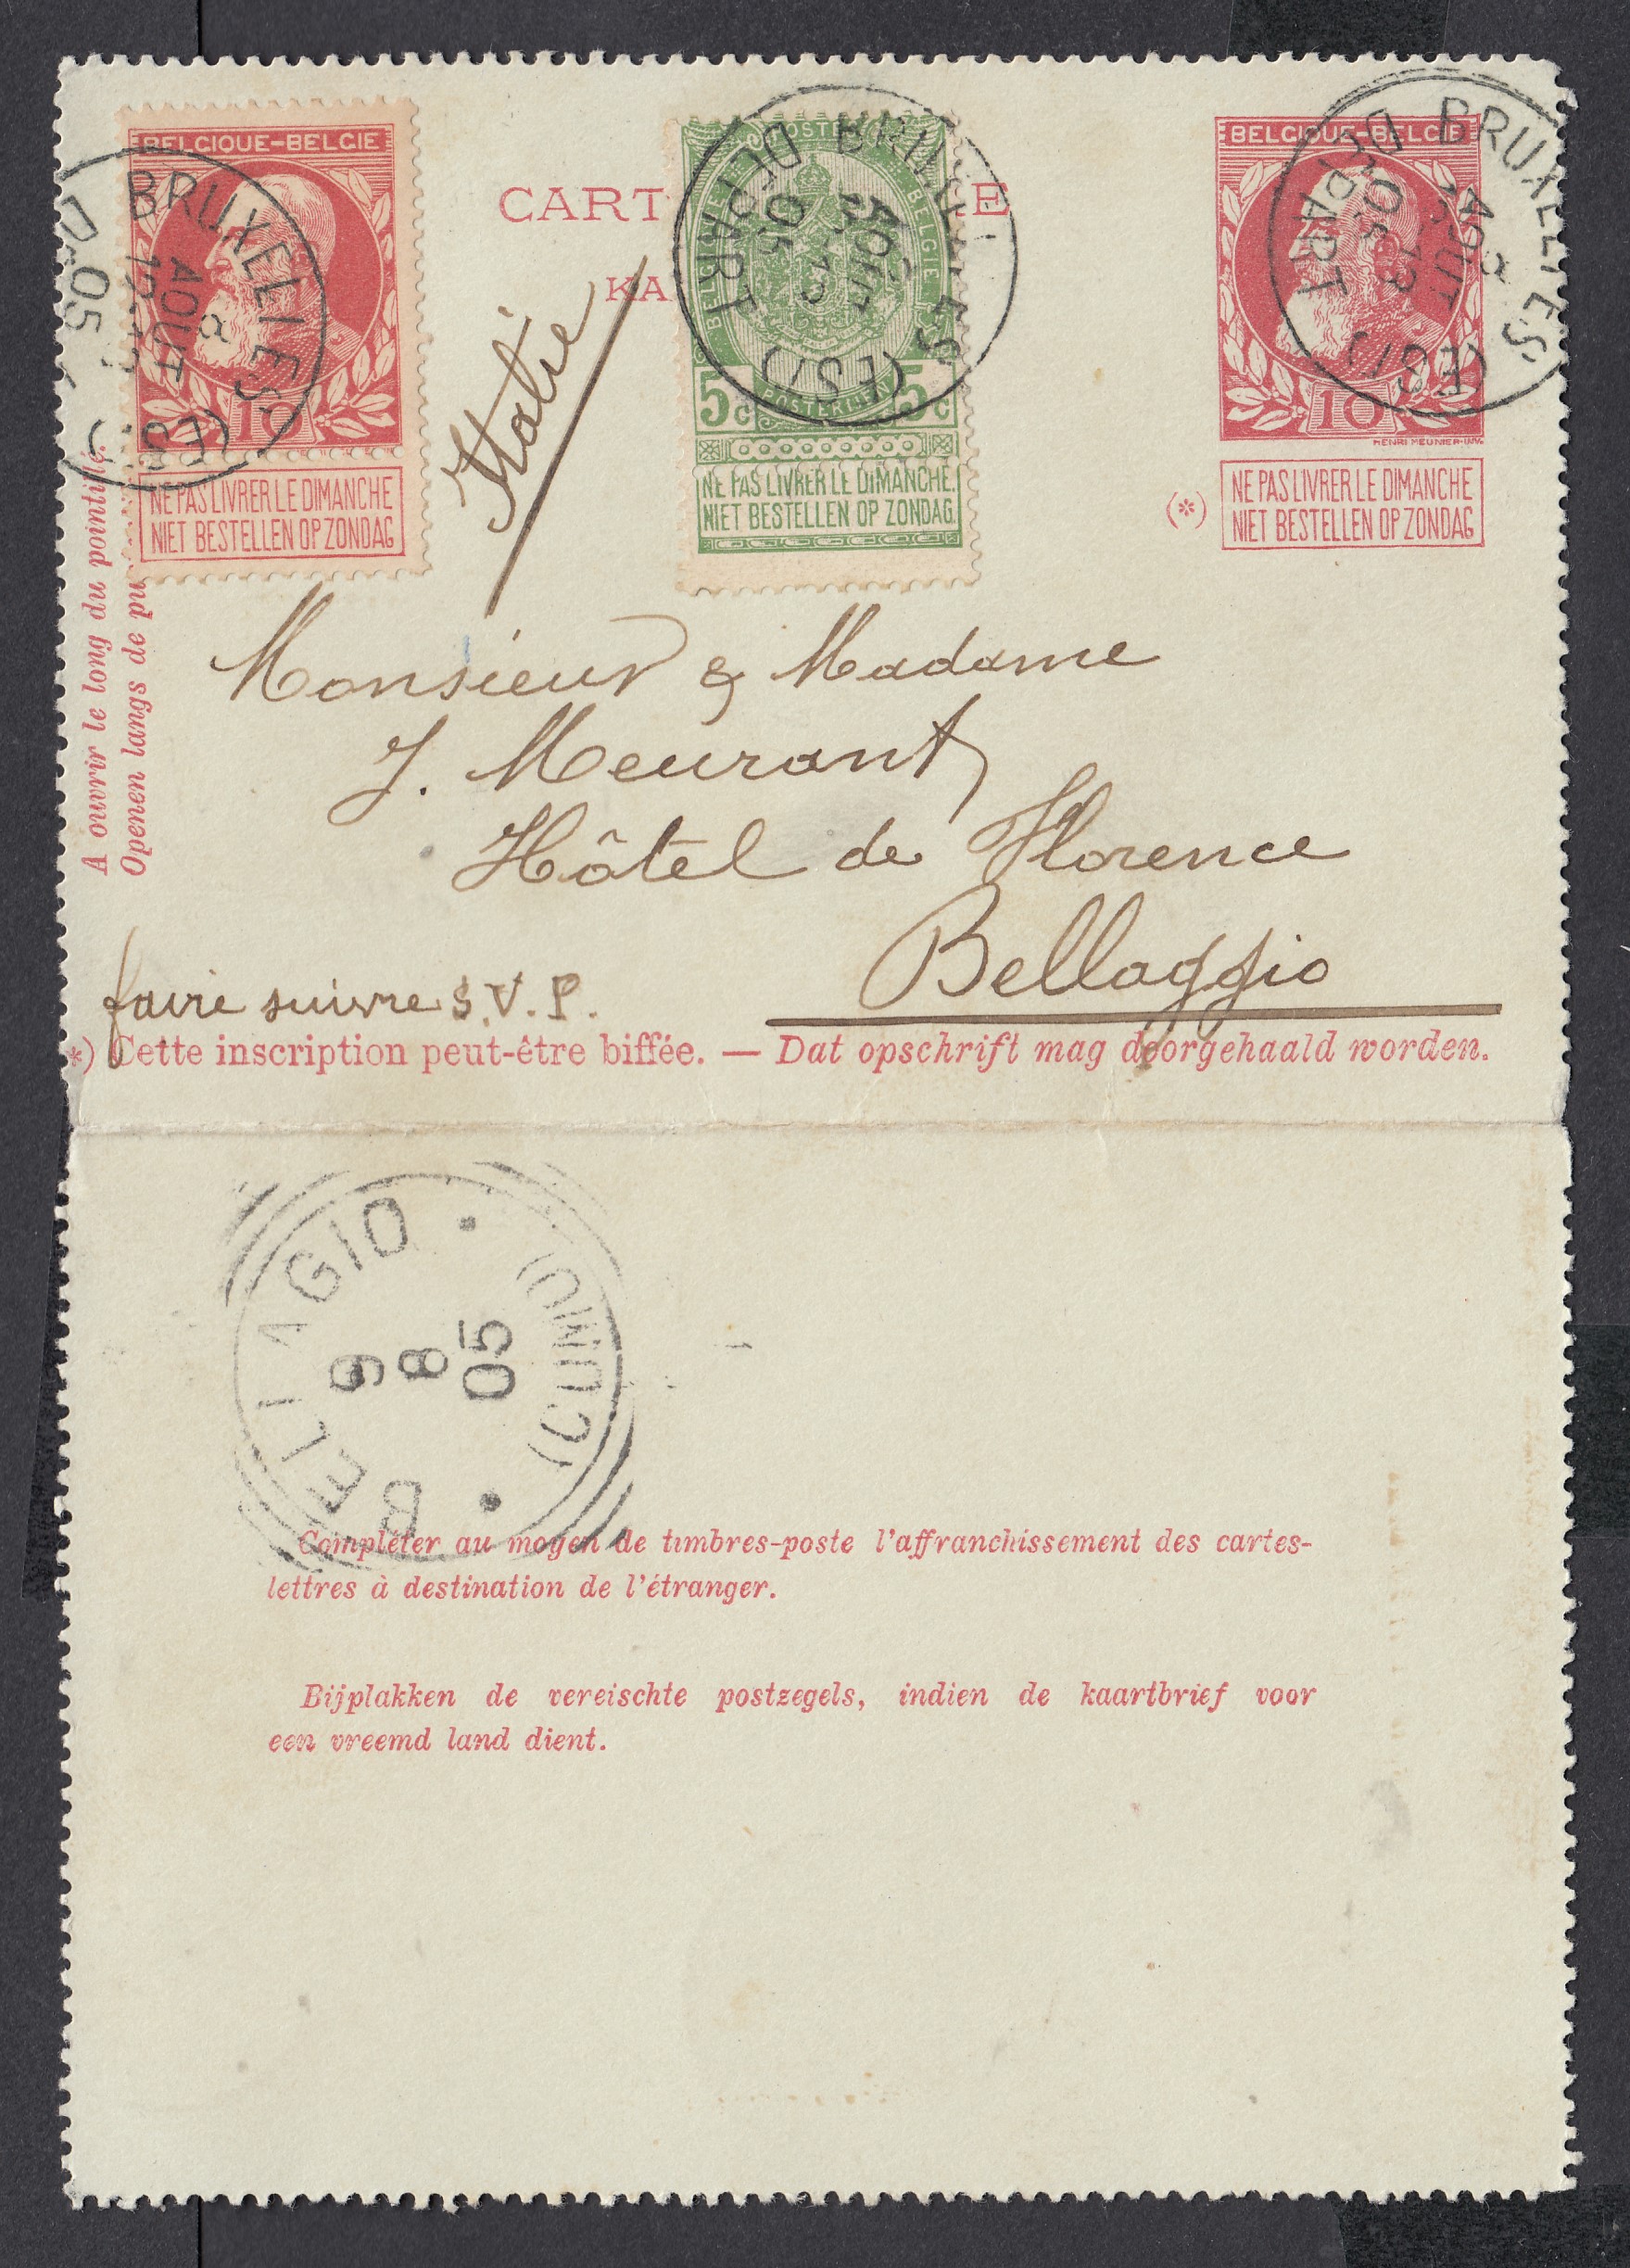 BELGIQUE-BELGIE
10
NE PAS LIVRER LE DIMANCHE
NIET BESTELLEN OP ZONDAG
BRUXELLES (EST)
8
AOUT
12-
05
CART
KA
E
POSTERIJEN
BELGIE
5c 5c
NE PAS LIVRER LE DIMANCHE.
NIET BESTELLEN OP ZONDAG.
BRUXELLES (EST)
AOUT
05
DEPART
BELGIQUE-BELGIE
10
HENRI MEUNIER-INV.
(*)
NE PAS LIVRER LE DIMANCHE
NIET BESTELLEN OP ZONDAG
BRUXELLES (EST)
8
AOUT
13
05
DEPART
Italie
A ouvrir le long du pointillé.
Openen langs de pu
Monsieur & Madame
J. Meurant
Hôtel de Florence
Bellaggio
faire suivre S.V.P.
*) Cette inscription peut-être biffée. — Dat opschrift mag doorgehaald worden.
BELLAGIO
9
8
05
(COMO)
Compléter au moyen de timbres-poste l'affranchissement des cartes-
lettres à destination de l'étranger.
Bijplakken de vereischte postzegels, indien de kaartbrief voor
een vreemd land dient.